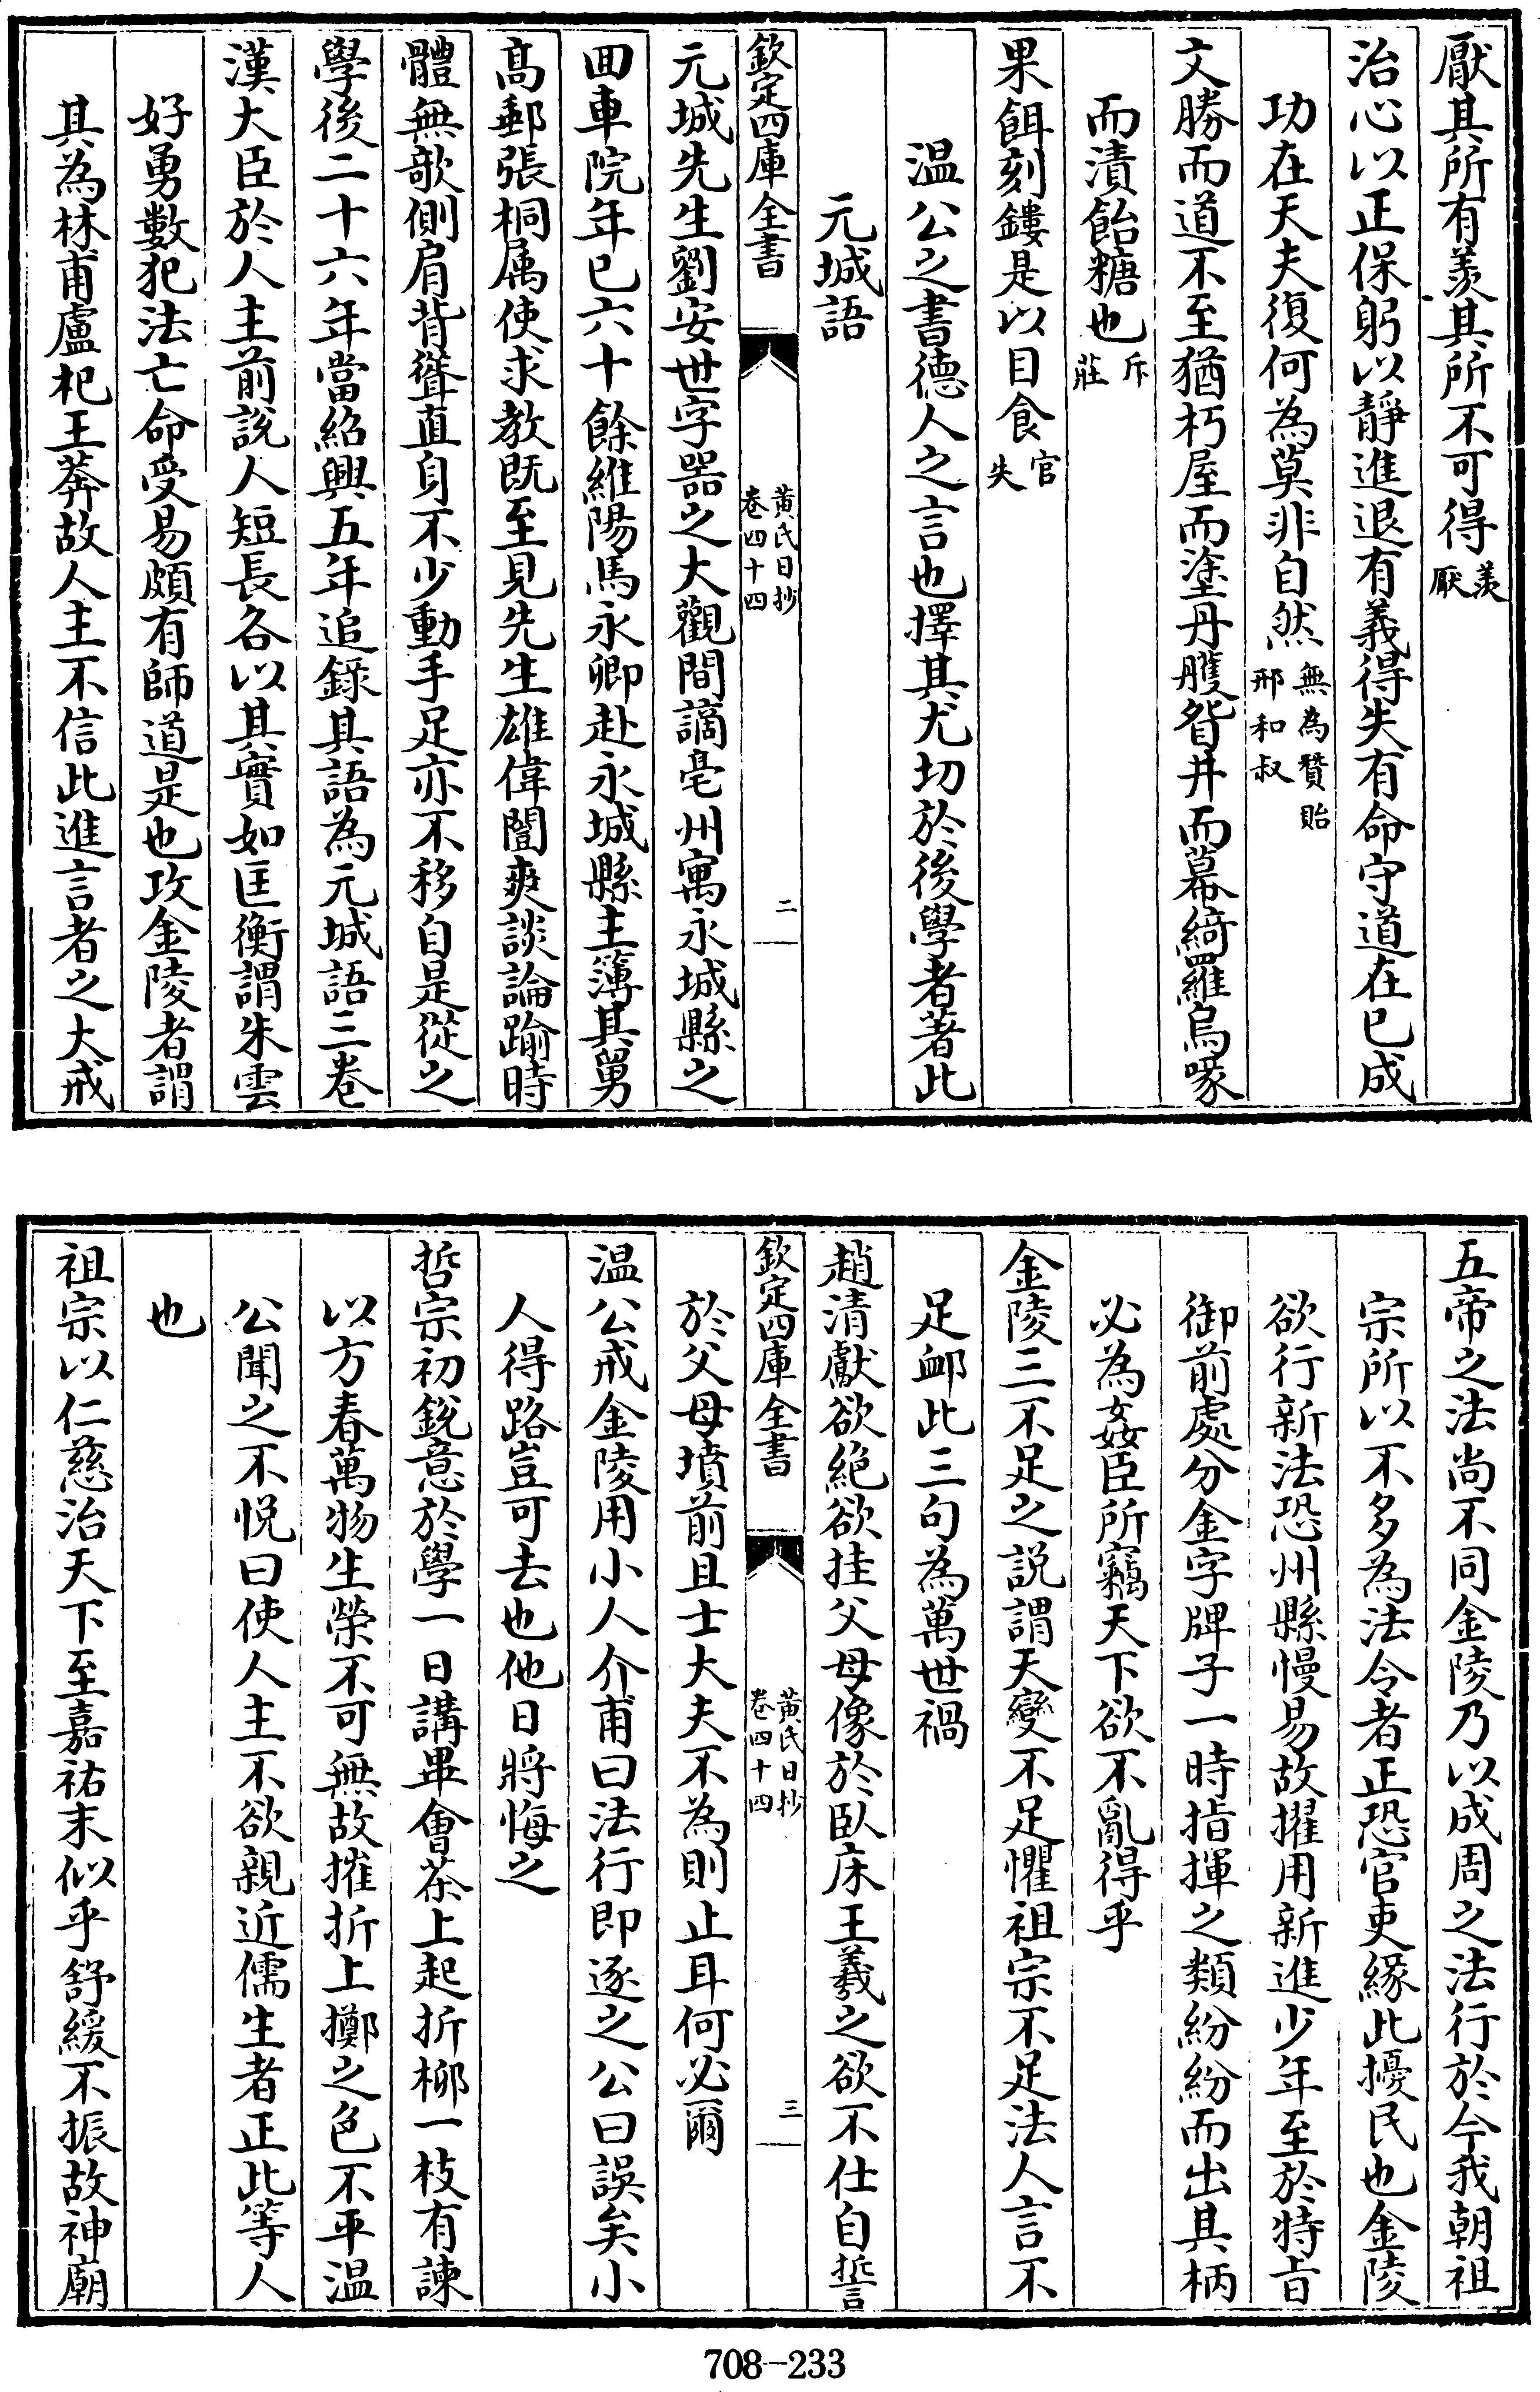 厭其所有羨其所不可得羨厭
治心以正保躬以靜進退有義得失有命守道在已成
功在天夫復何為莫非自然無為贊貽邢和叔
文勝而道不至猶朽屋而塗丹雘眢井而幕綺羅烏喙
而漬飴糖也斥莊
果餌刻鏤是以目食官失
温公之書德人之言也擇其尤切於後學者著此
元城語
欽定四庫全書 黄氏日抄卷四十四 二
元城先生劉安世字器之大觀間謫亳州寓永城縣之
囬車院年已六十餘維陽馬永卿赴永城縣主簿其舅
髙郵張桐属使求教既至見先生雄偉闓爽談論踰時
體無欹側肩背聳直身不少動手足亦不移自是從之
學後二十六年當紹興五年追錄其語為元城語三卷
漢大臣於人主前說人短長各以其實如匡衡謂朱雲
好勇數犯法亡命受易頗有師道是也攻金陵者謂
其為林甫盧杞王莽故人主不信此進言者之大戒
五帝之法尚不同金陵乃以成周之法行於今我朝祖
宗所以不多為法令者正恐官吏緣此擾民也金陵
欲行新法恐州縣慢易故擢用新進少年至於特㫖
御前處分金字牌子一時指揮之類紛紛而出其柄
必為姦臣所竊天下欲不亂得乎
金陵三不足之説謂天變不足懼祖宗不足法人言不
足衈此三句為萬世禍
趙清獻欲絕欲挂父母像於臥床王羲之欲不仕自誓
欽定四庫全書 黄氏日抄卷四十四 三
於父母墳前且士大夫不為則止耳何必爾
温公戒金陵用小人介甫曰法行即逐之公曰誤矣小
人得路豈可去也他日將悔之
哲宗初銳意於學一日講畢會茶上起折柳一枝有諫
以方春萬物生榮不可無故摧折上擲之色不平温
公聞之不悅曰使人主不欲親近儒生者正此等人
也
祖宗以仁慈治天下至嘉祐末似乎舒緩不振故神廟
708-233